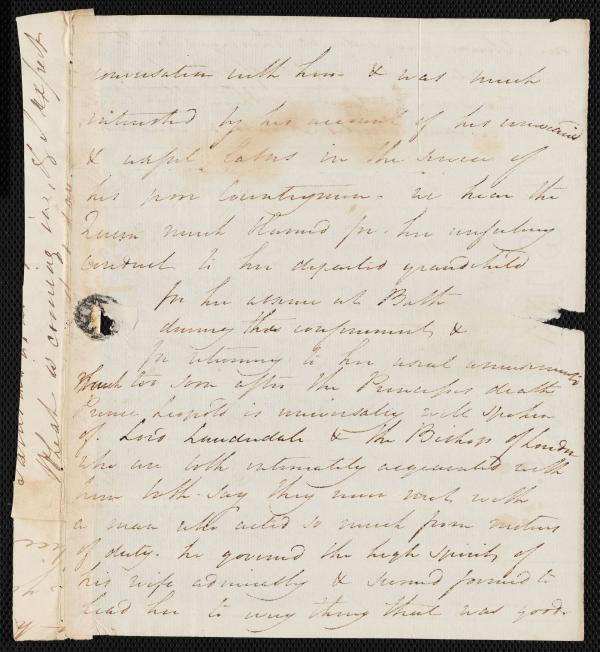 conversation with him & was much
interested by his account of his unwearied
& useful labors in the service of
his poor Countrymen. we hear the
Queen much blamed for her unfeeling
conduct to her departed grandchild
for her absence at Bath
during the confinement, &
for returning to her usual amusements
much too soon after the Princess's death
Prince Leopold is universally well spoken
of. Lord Lauderdale & the Bishop of London
who are both intimately acquainted with
him both say they never met with
a man who acted so much from motives
of duty. he governed the high spirits of
his wife admirably & seemed formed to
lead her to every thing that was good.
Wheat is coming in, & I expect